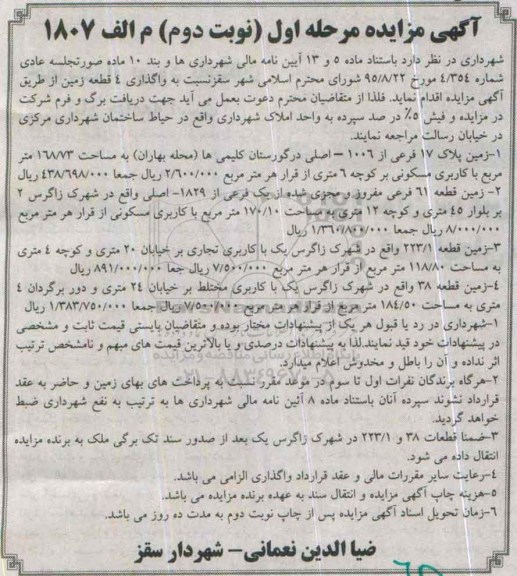 آگهی مزایده مرحله اول (نوبت دوم) م الف ۱۸۰۷
شهرداری در نظر دارد باستناد ماده ۵ و ۱۳ آیین نامه مالی شهرداری ها و بند ۱۰ ماده صورتجلسه عادی
شماره ۴/۳۵۴ مورخ ۹۵/۸/۲۲ شورای محترم اسلامی شهر سقزنسبت به واگذاری ۴ قطعه زمین از طریق
آگهی مزایده اقدام نماید. فلذا از متقاضیان محترم دعوت بعمل می آید جهت دریافت برگ و فرم شرکت
در مزایده و فیش ۵٪ در صد سپرده به واحد املاک شهرداری واقع در حیاط ساختمان شهرداری مرکزی
در خیابان رسالت مراجعه نمایند.
۱-زمین پلاک ۱۷ فرعی از ۱۰۰۶ – اصلی درگورستان کلیمی ها (محله بهاران) به مساحت ۱۶۸/۷۳ متر
مربع با کاربری مسکونی بر کوچه ۶ متری از قرار هر متر مربع ۲/۶۰۰/۰۰۰ ریال جمعا ۴۳۸/۶۹۸/۰۰۰ ریال
۲- زمین قطعه ۶۱ فرعی مفروز و مجزی شده از یک فرعی از ۱۸۲۹- اصلی واقع در شهرک زاگرس ۲
بر بلوار ۴۵ متری و کوچه ۱۲ متری به مساحت ۱۷۰/۱۰ متر مربع با کاربری مسکونی از قرار هر متر مربع
۸/۰۰۰/۰۰۰ ریال جمعا ۱/۳۶۰/۸۰۰/۰۰۰ ریال
۳-زمین قطعه ۲۲۳/۱ واقع در شهرک زاگرس یک با کاربری تجاری بر خیابان ۲۰ متری و کوچه ۴ متری
به مساحت ۱۱۸/۸۰ متر مربع از قرار هر متر مربع ۷/۵۰۰/۰۰۰ ریال جعا ۸۹۱/۰۰۰/۰۰۰ ریال
۴-زمین قطعه ۳۸ واقع در شهرک زاگرس یک با کاربری مختلط بر خیابان ۲۴ متری و دور برگردان ۴
متری به مساحت ۱۸۴/۵۰ متر مربع از قرار هر متر مربع ۷/۵۰۰/۰۰۰ ریال جمعا ۱/۳۸۳/۷۵۰/۰۰۰ ریال
۱-شهرداری در رد یا قبول هر یک از پیشنهادات مختار بوده و متقاضیان بایستی قیمت ثابت و مشخصی
در پیشنهادات خود قید نمایند.لذا به پیشنهادات درصدی و یا بالاترین قیمت های مبهم و نامشخص ترتیب
اثر نداده و آن را باطل و مخدوش اعلام میدارد.
۲-هرگاه برندگان نفرات اول تا سوم در موعد مقرر نسبت به پرداخت های بهای زمین و حاضر به عقد
قرارداد نشوند سپرده آنان باستناد ماده ۸ آئین نامه مالی شهرداری ها به ترتیب به نفع شهرداری ضبط
خواهد گردید.
۳-ضمنا قطعات ۳۸ و ۲۲۳/۱ در شهرک زاگرس یک بعد از صدور سند تک برگی ملک به برنده مزایده
انتقال داده می شود.
۴-رعایت سایر مقررات مالی و عقد قرارداد واگذاری الزامی می باشد.
۵-هزینه چاپ آگهی مزایده و انتقال سند به عهده برنده مزایده می باشد.
۶-زمان تحویل اسناد آگهی مزایده پس از چاپ نوبت دوم به مدت ده روز می باشد.
ضیا الدین نعمانی- شهردار سقز